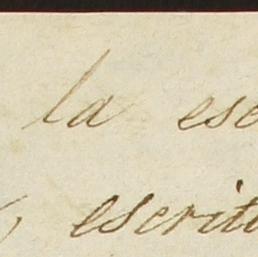 la esc
, escrit